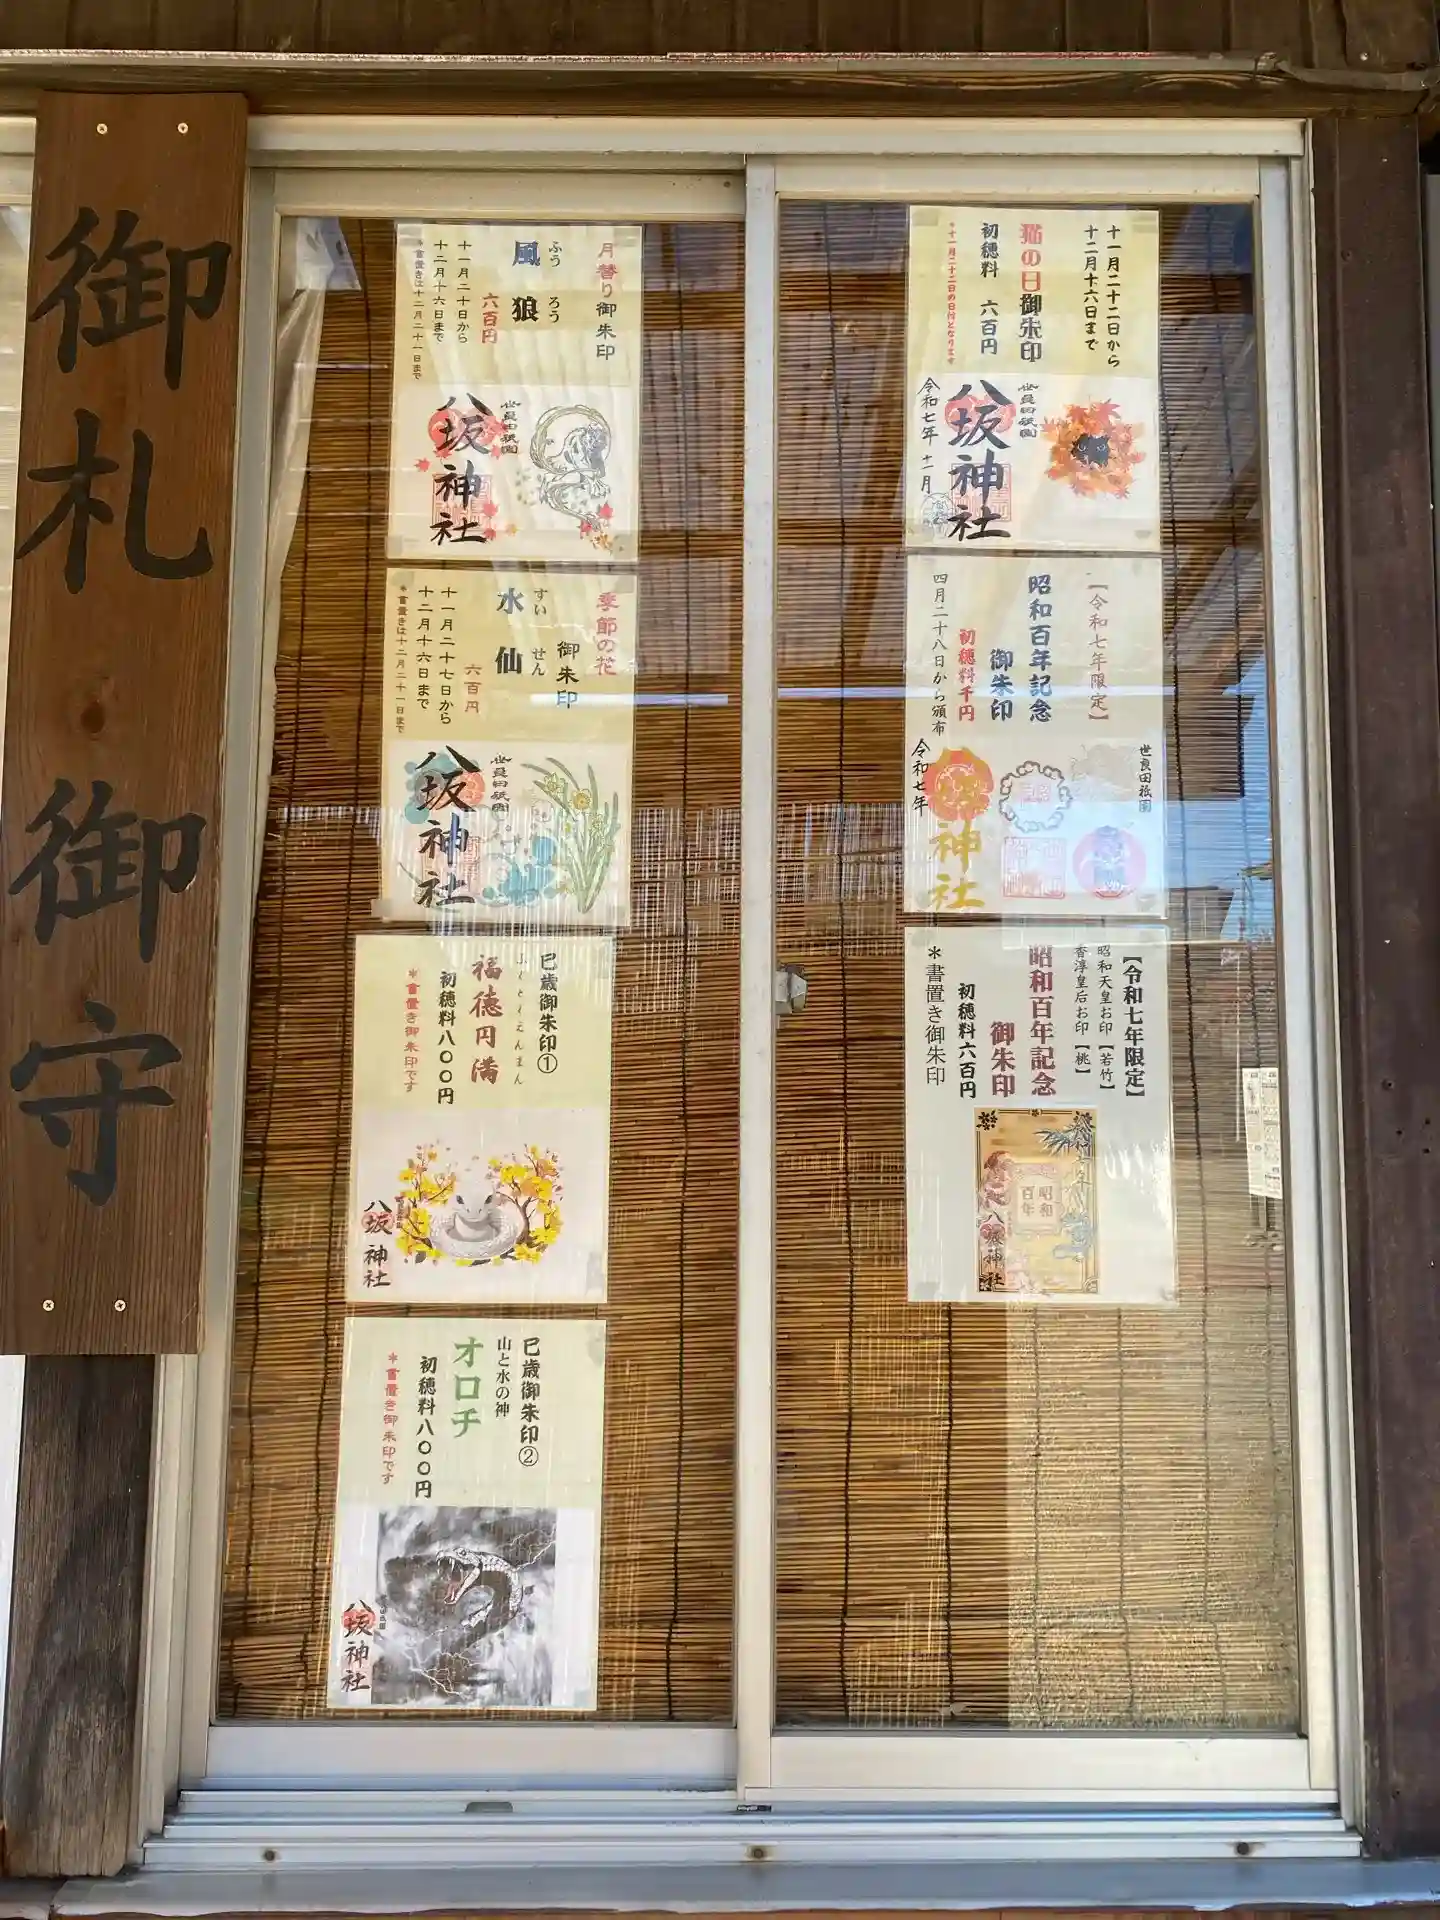 御札 御守
月替り御朱印
ふうろう
風狼
六百円
十一月二十日から
十二月十六日まで
*書置きは十二月二十一日まで
世良田祇園
八坂神社
季節の花
御朱印
すいせん
水仙
六百円
十一月二十七日から
十二月十六日まで
*書置きは十二月二十一日まで
世良田祇園
八坂神社
巳歳御朱印①
ふくとくえんまん
福徳円満
初穂料八〇〇円
*書置き御朱印です
八坂神社
巳歳御朱印②
山と水の神
オロチ
初穂料八〇〇円
*書置き御朱印です
八坂神社
十一月二十二日から
十二月十六日まで
猫の日御朱印
初穂料 六百円
*十一月二十二日の日付となります
世良田祇園
八坂神社
令和七年 十一月
【令和七年限定】
昭和百年記念
御朱印
初穂料千円
四月二十八日から頒布
世良田祇園
八坂神社
令和七年
【令和七年限定】
昭和天皇お印【若竹】
香淳皇后お印【桃】
昭和百年記念
御朱印
初穂料六百円
*書置き御朱印
令和七年
昭和
百年
八坂神社